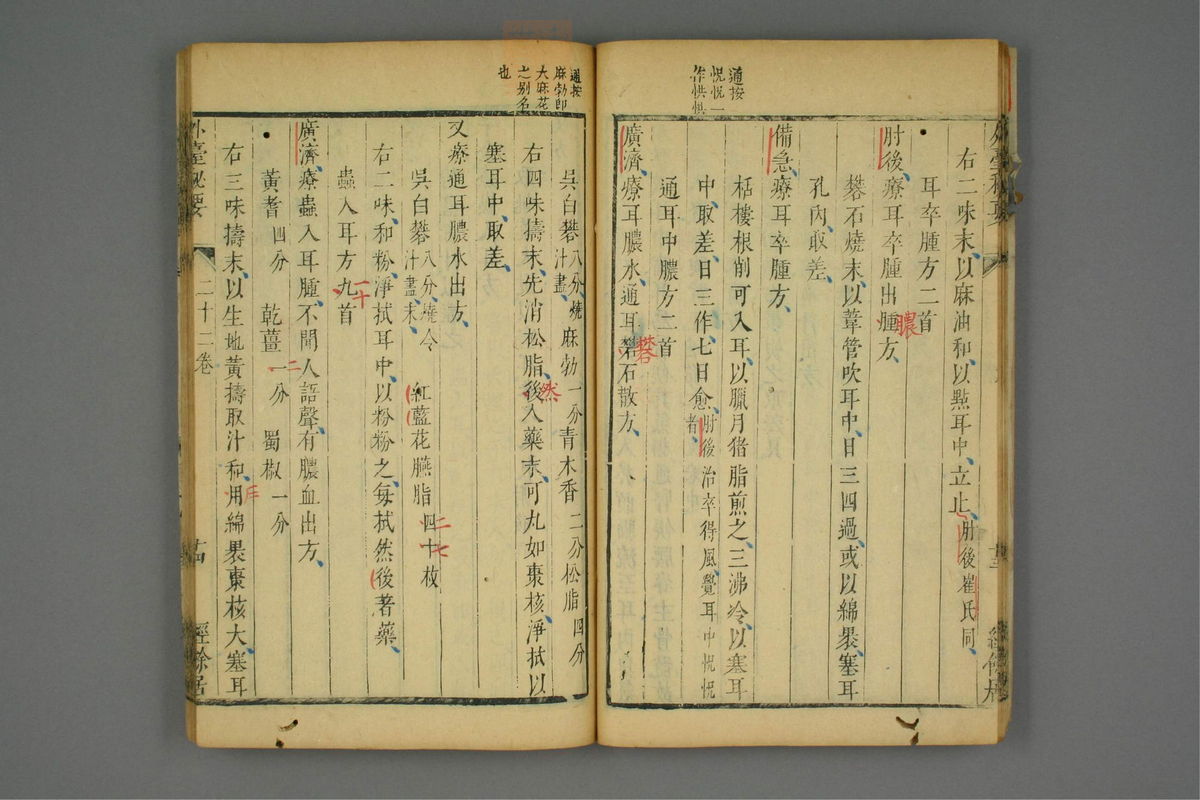 通按
恍恍一
作怏怏
右二味末以麻油和以㸃耳中立止肘後崔氏同
耳卒腫方二首
肘後療耳卒腫出腫方
膿
礬石燒末以葦管吹耳中日三四過或以綿褁塞耳
孔内取差
備急療耳卒腫方
栝樓根削可入耳以臘月猪脂煎之三沸冷以塞耳
中取差日三作七日愈肘後治卒得風覺耳中恍恍
者
通耳中膿方二首
廣濟療耳膿水通耳礬石散方
礬
通按
麻勃即
大麻花
之别名
也
吳白礬八分燒汁盡麻勃一分青木香二分松脂四分
右四味擣末先消松脂後入藥末可丸如棗核淨拭以
然
塞耳中取差
又療通耳膿水出方
吳白礬八分燒令汁盡末紅藍花臙脂四十枚
二七
右二味和粉淨拭耳中以粉粉之每拭然後著藥
蟲入耳方九首
一十
廣濟療蟲入耳腫不聞人語聲有膿血出方
黃耆四分 乾薑一分 蜀椒一分
二
右三味擣末以生地黃擣取汁和用綿褁棗核大塞耳
外臺秘要 二十二卷 十四 經餘居